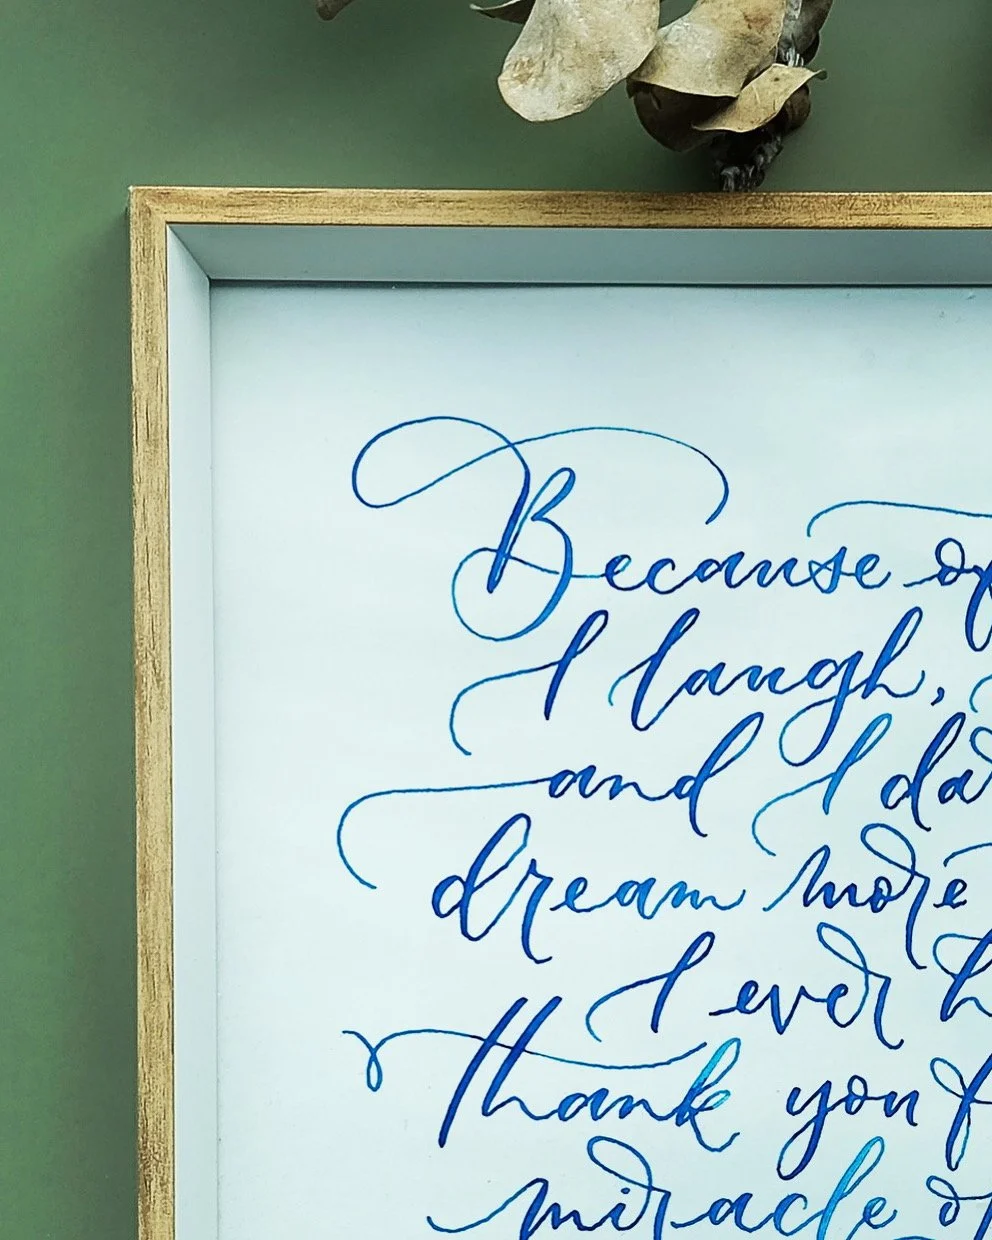 Because of
I laugh,
and I da
dream more
I ever h
Thank you f
miracle of